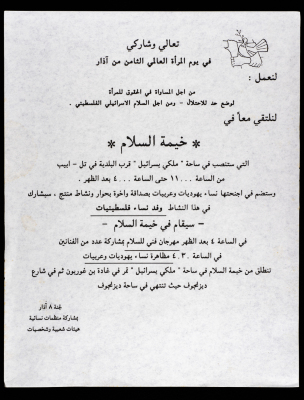 تعالي وشاركي
في يوم المرأة العالمي الثامن من آذار
لنعمل :
من اجل المساواة في الحقوق للمرأة
لوضع حد للاحتلال - ومن اجل السلام الاسرائيلي الفلسطيني .
لنلتقي معاً في
* خيمة السلام *
التي ستنصب في ساحة " ملكي يسرائيل " قرب البلدية في تل - ابيب
من الساعة ... ١١ حتى الساعة ... ٤ بعد الظهر .
وستضم في اجنحتها نساء يهوديات وعربيات بصداقة واخوة بحوار ونشاط منتج ، سيشارك
في هذا النشاط وفد نساء فلسطينيات
- سيقام في خيمة السلام -
في الساعة ٤ بعد الظهر مهرجان فني للسلام بمشاركة عدد من الفنانين
في الساعة ٤.٣٠ مظاهرة نساء يهوديات وعربيات
تنطلق من خيمة السلام في ساحة " ملكي يسرائيل " تمر في غادة بن غوريون ثم في شارع
ديزنجوف حيث تنتهي في ساحة ديزنجوف
لجنة ٨ آذار
بمشاركة منظمات نسائية
هيئات شعبية وشخصيات